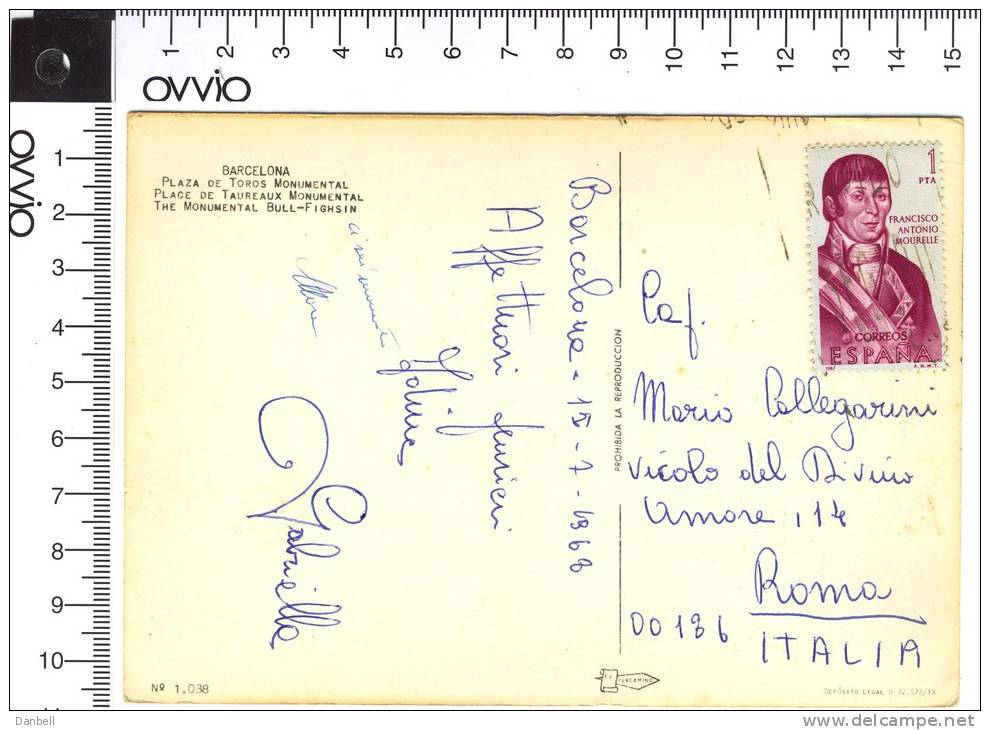 1 2 3 4 5 6 7 8 9 10 11 12 13 14 15
OVVIO
OVVIO
1
2
3
4
5
6
7
8
9
10
11
BARCELONA
PLAZA DE TOROS MONUMENTAL
PLACE DE TAUREAUX MONUMENTAL
THE MONUMENTAL BULL-FIGHSIN
Barcelona - 15 - 7 - 1968
Affettuosi
Gabriella
PROHIBIDA LA REPRODUCCION
1
PTA
FRANCISCO
ANTONIO
MOURELLE
CORREOS
ESPAÑA
1967 F.N.M.T.
Caf.
Mario Pallegarini
Vicolo del Divino
Amore, 14
00186 ROMA
ITALIA
Nº 1.038
ED. PERGAMINO
DEPÓSITO LEGAL B 12.575/IX
Danbell
www.delcampe.net